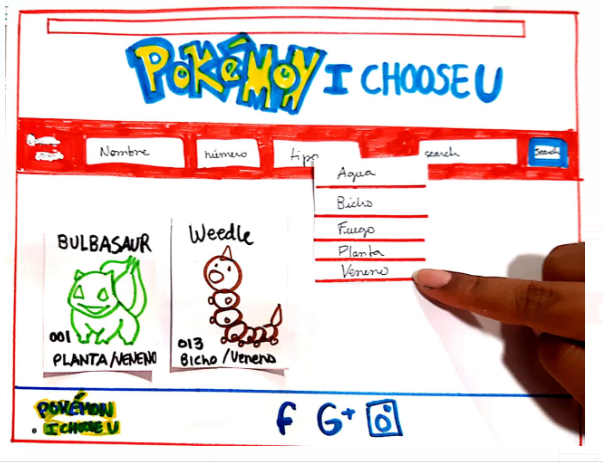 POKÉMON I CHOOSE U
Nombre número tipo search Search
Agua
Bicho
Fuego
Planta
Veneno
BULBASAUR
001
PLANTA/VENENO
Weedle
013
Bicho/Veneno
POKÉMON
I CHOOSE U
f G+